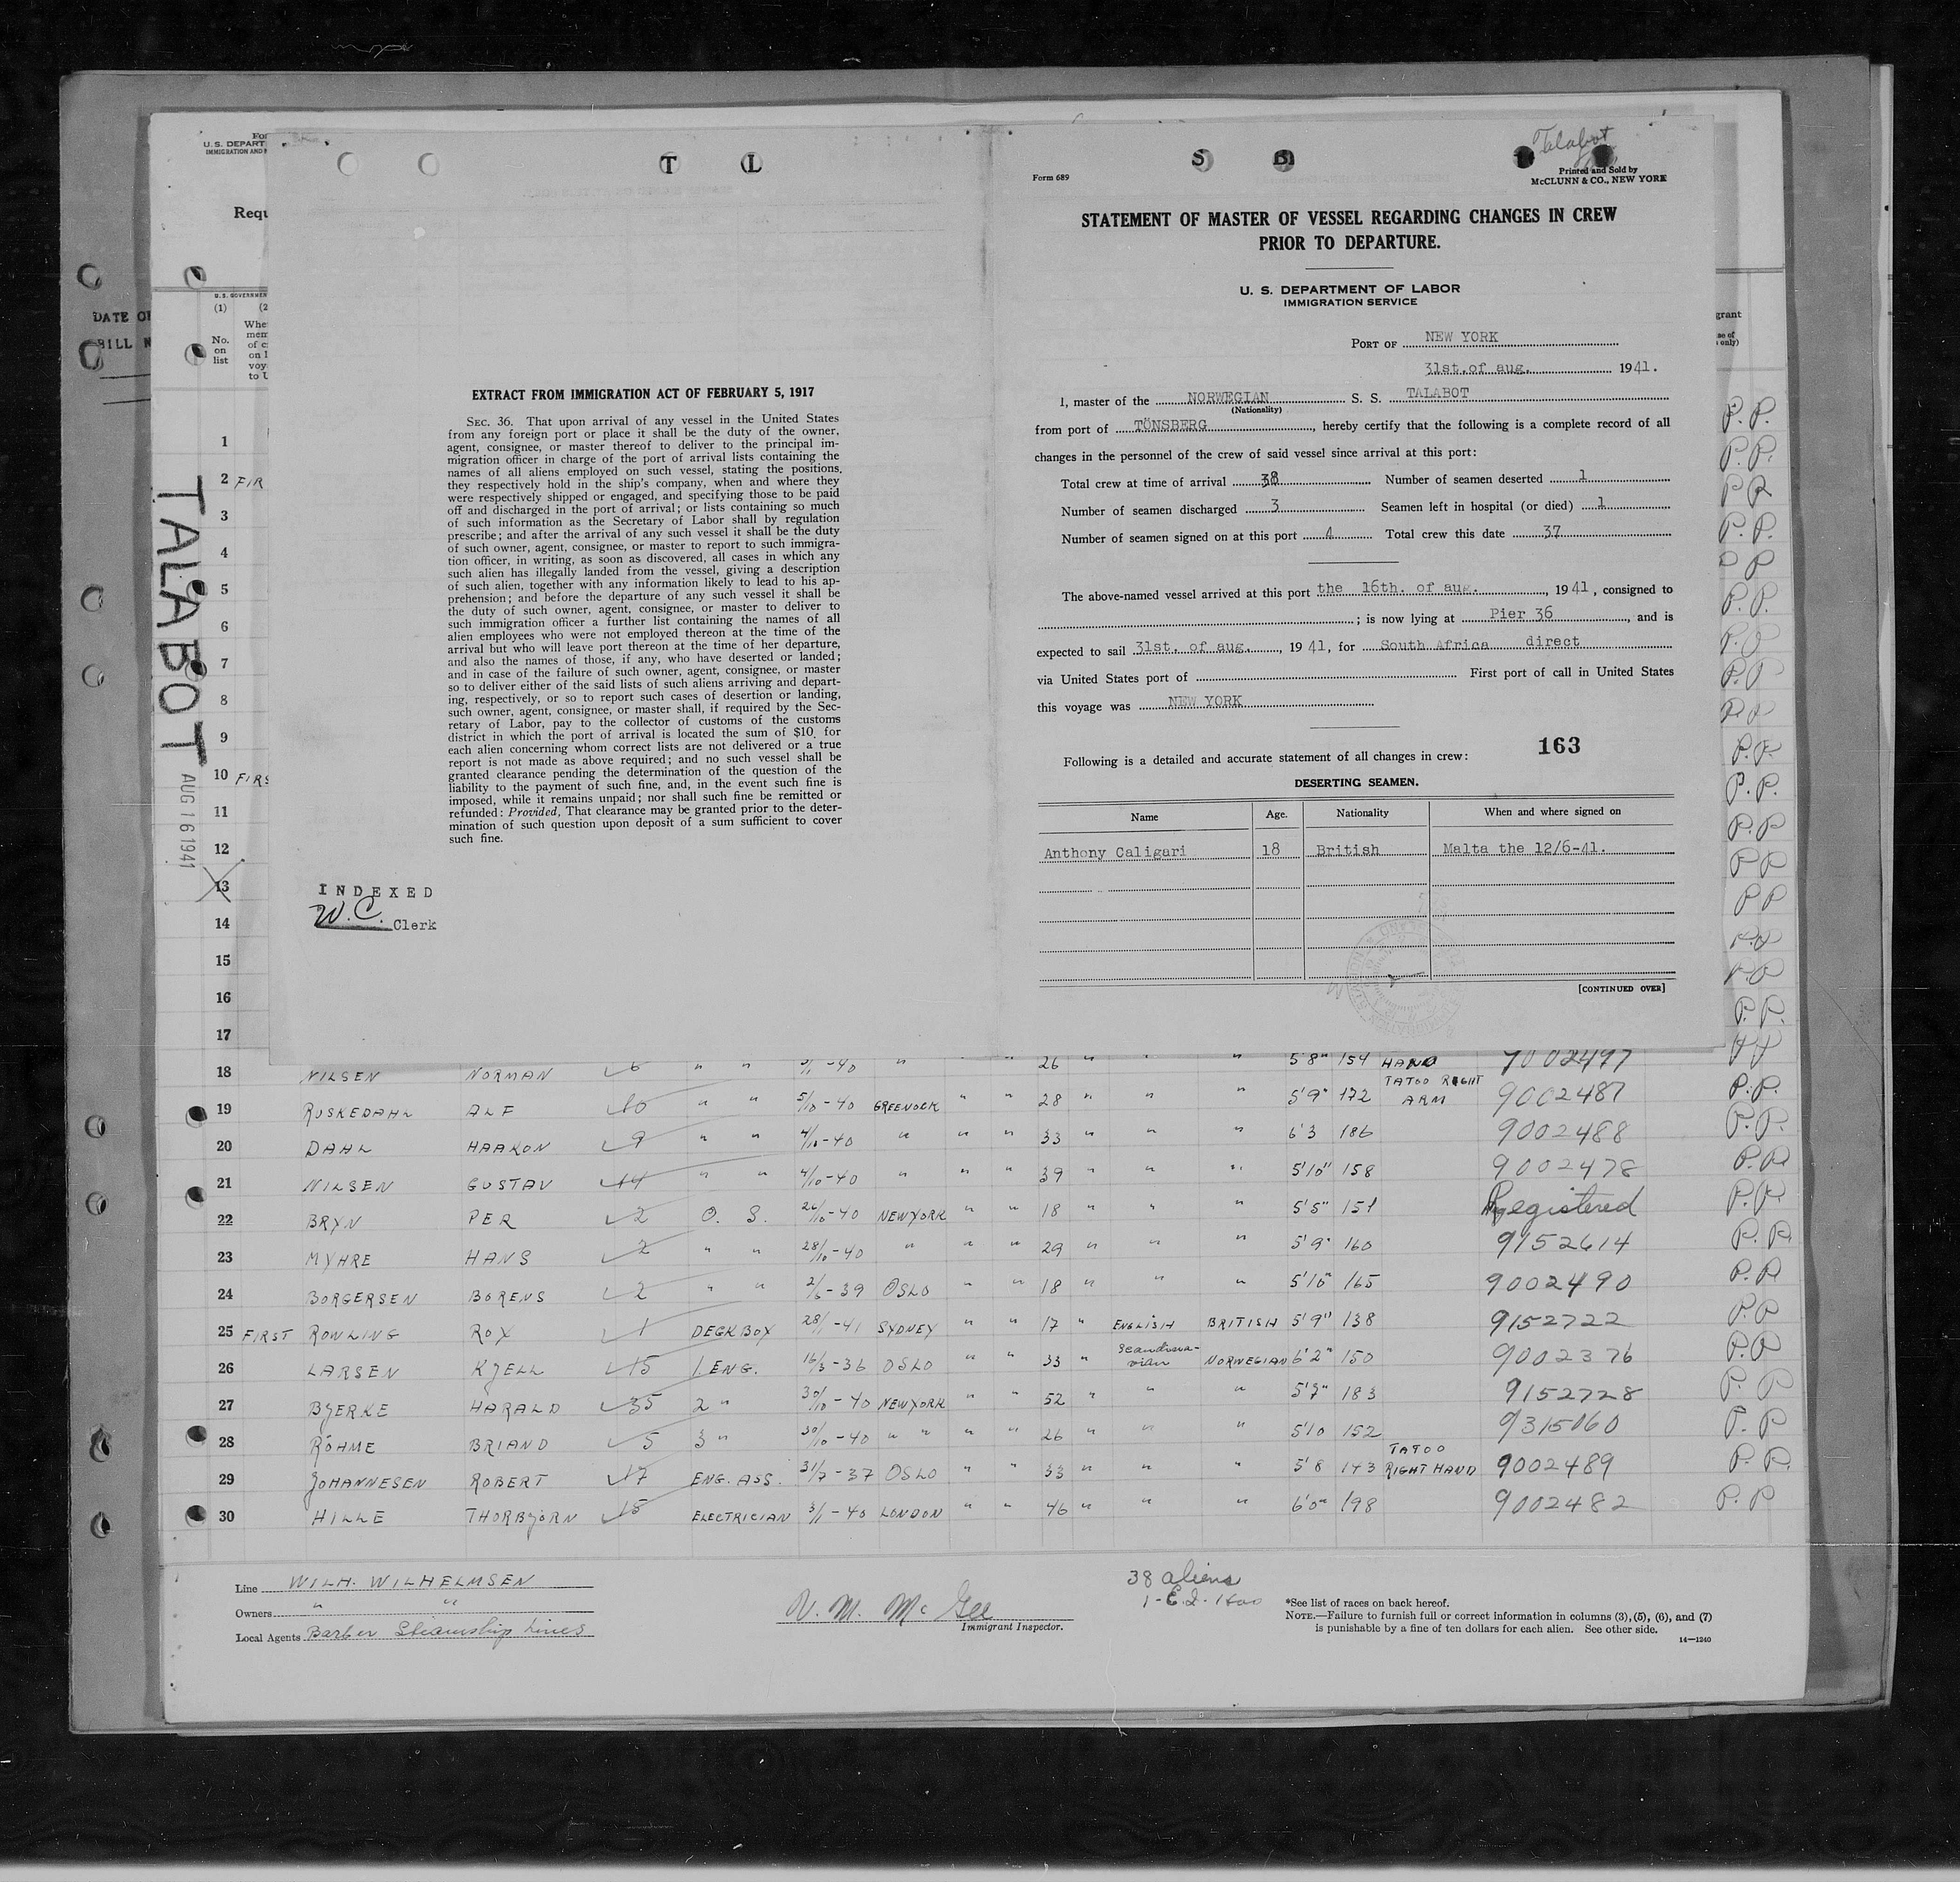 Talabot
T L S B
Form 689
Printed and Sold by
McCLUNN & CO., NEW YORK
STATEMENT OF MASTER OF VESSEL REGARDING CHANGES IN CREW
PRIOR TO DEPARTURE.
U. S. DEPARTMENT OF LABOR
IMMIGRATION SERVICE
PORT OF NEW YORK
31st. of aug. 1941.
I, master of the NORWEGIAN S. S. TALABOT
(Nationality)
from port of TÖNSBERG, hereby certify that the following is a complete record of all
changes in the personnel of the crew of said vessel since arrival at this port:
Total crew at time of arrival 38 Number of seamen deserted 1
Number of seamen discharged 3 Seamen left in hospital (or died) 1
Number of seamen signed on at this port 4 Total crew this date 37
The above-named vessel arrived at this port the 16th. of aug., 1941, consigned to
; is now lying at Pier 36, and is
expected to sail 31st. of aug., 1941, for South Africa direct
via United States port of First port of call in United States
this voyage was NEW YORK
163
Following is a detailed and accurate statement of all changes in crew:
DESERTING SEAMEN.
Name Age. Nationality When and where signed on
Anthony Caligari 18 British Malta the 12/6-41.
[CONTINUED OVER]
EXTRACT FROM IMMIGRATION ACT OF FEBRUARY 5, 1917
SEC. 36. That upon arrival of any vessel in the United States
from any foreign port or place it shall be the duty of the owner,
agent, consignee, or master thereof to deliver to the principal im-
migration officer in charge of the port of arrival lists containing the
names of all aliens employed on such vessel, stating the positions,
they respectively hold in the ship's company, when and where they
were respectively shipped or engaged, and specifying those to be paid
off and discharged in the port of arrival; or lists containing so much
of such information as the Secretary of Labor shall by regulation
prescribe; and after the arrival of any such vessel it shall be the duty
of such owner, agent, consignee, or master to report to such immigra-
tion officer, in writing, as soon as discovered, all cases in which any
such alien has illegally landed from the vessel, giving a description
of such alien, together with any information likely to lead to his ap-
prehension; and before the departure of any such vessel it shall be
the duty of such owner, agent, consignee, or master to deliver to
such immigration officer a further list containing the names of all
alien employees who were not employed thereon at the time of the
arrival but who will leave port thereon at the time of her departure,
and also the names of those, if any, who have deserted or landed;
and in case of the failure of such owner, agent, consignee, or master
so to deliver either of the said lists of such aliens arriving and depart-
ing, respectively, or so to report such cases of desertion or landing,
such owner, agent, consignee, or master shall, if required by the Sec-
retary of Labor, pay to the collector of customs of the customs
district in which the port of arrival is located the sum of $10 for
each alien concerning whom correct lists are not delivered or a true
report is not made as above required; and no such vessel shall be
granted clearance pending the determination of the question of the
liability to the payment of such fine, and, in the event such fine is
imposed, while it remains unpaid; nor shall such fine be remitted or
refunded: Provided, That clearance may be granted prior to the deter-
mination of such question upon deposit of a sum sufficient to cover
such fine.
INDEXED
W.C. Clerk
TALABOT
AUG 16 1941
DATE OF
BILL N
U.S. DEPART
IMMIGRATION AND
Requ
U.S. GOVERNMEN
(1) (2
No.
on
list
Whe
mem
of c
on l
voy
to U
1
2 FIR
3
4
5
6
7
8
9
10 FIRS
11
12
13
14
15
16
17
18 NILSEN NORMAN 6 " " -40 " " " 26 " " " 5'8" 154 HAND 9002497
19 RUSKEDAHL ALF 10 " " 5/10-40 GREENOCK " " 28 " " " 5'9" 172 TATOO RIGHT ARM 9002487 P.P.
20 DAHL HAAKON 9 " " 4/10-40 " " " 33 " " " 6'3 186 9002488 P.P.
21 NILSEN GUSTAV 14 " " 4/10-40 " " " 39 " " " 5'10" 158 9002478 P.P.
22 BRYN PER 2 O. S. 26/10-40 NEWYORK " " 18 " " " 5'5" 151 Registered P.P.
23 MYHRE HANS 2 " " 28/10-40 " " " 29 " " " 5'9" 160 9152614 P.P.
24 BORGERSEN BORENS 2 " " 2/6-39 OSLO " " 18 " " " 5'10" 165 9002490 P.P
25 FIRST ROWLING ROY 1 DECKBOY 28/1-41 SYDNEY " " 17 " ENGLISH BRITISH 5'9" 138 9152722 P.P
26 LARSEN KJELL 15 1 ENG. 16/3-36 OSLO " " 33 " Scandinavian NORWEGIAN 6'2" 150 9002376 P.P
27 BJERKE HARALD 35 2 " 30/10-40 NEWYORK " " 52 " " " 5'7" 183 9152728 P. P
28 RÖHME BRIAND 5 3 " 30/10-40 " " " " 26 " " " 5'10 152 9315060 P. P
29 JOHANNESEN ROBERT 17 ENG. ASS. 31/7-37 OSLO " " 33 " " " 5'8 143 TATOO RIGHT HAND 9002489 P. P.
30 HILLE THORBJÖRN 15 ELECTRICIAN 3/1-40 LONDON " " 46 " " " 6'0" 198 9002482 P. P
Line WILH. WILHELMSEN
Owners " "
Local Agents Barber Steamship Lines
V. M. McGee
Immigrant Inspector.
38 aliens
*See list of races on back hereof.
NOTE.—Failure to furnish full or correct information in columns (3), (5), (6), and (7)
is punishable by a fine of ten dollars for each alien. See other side.
14—1240